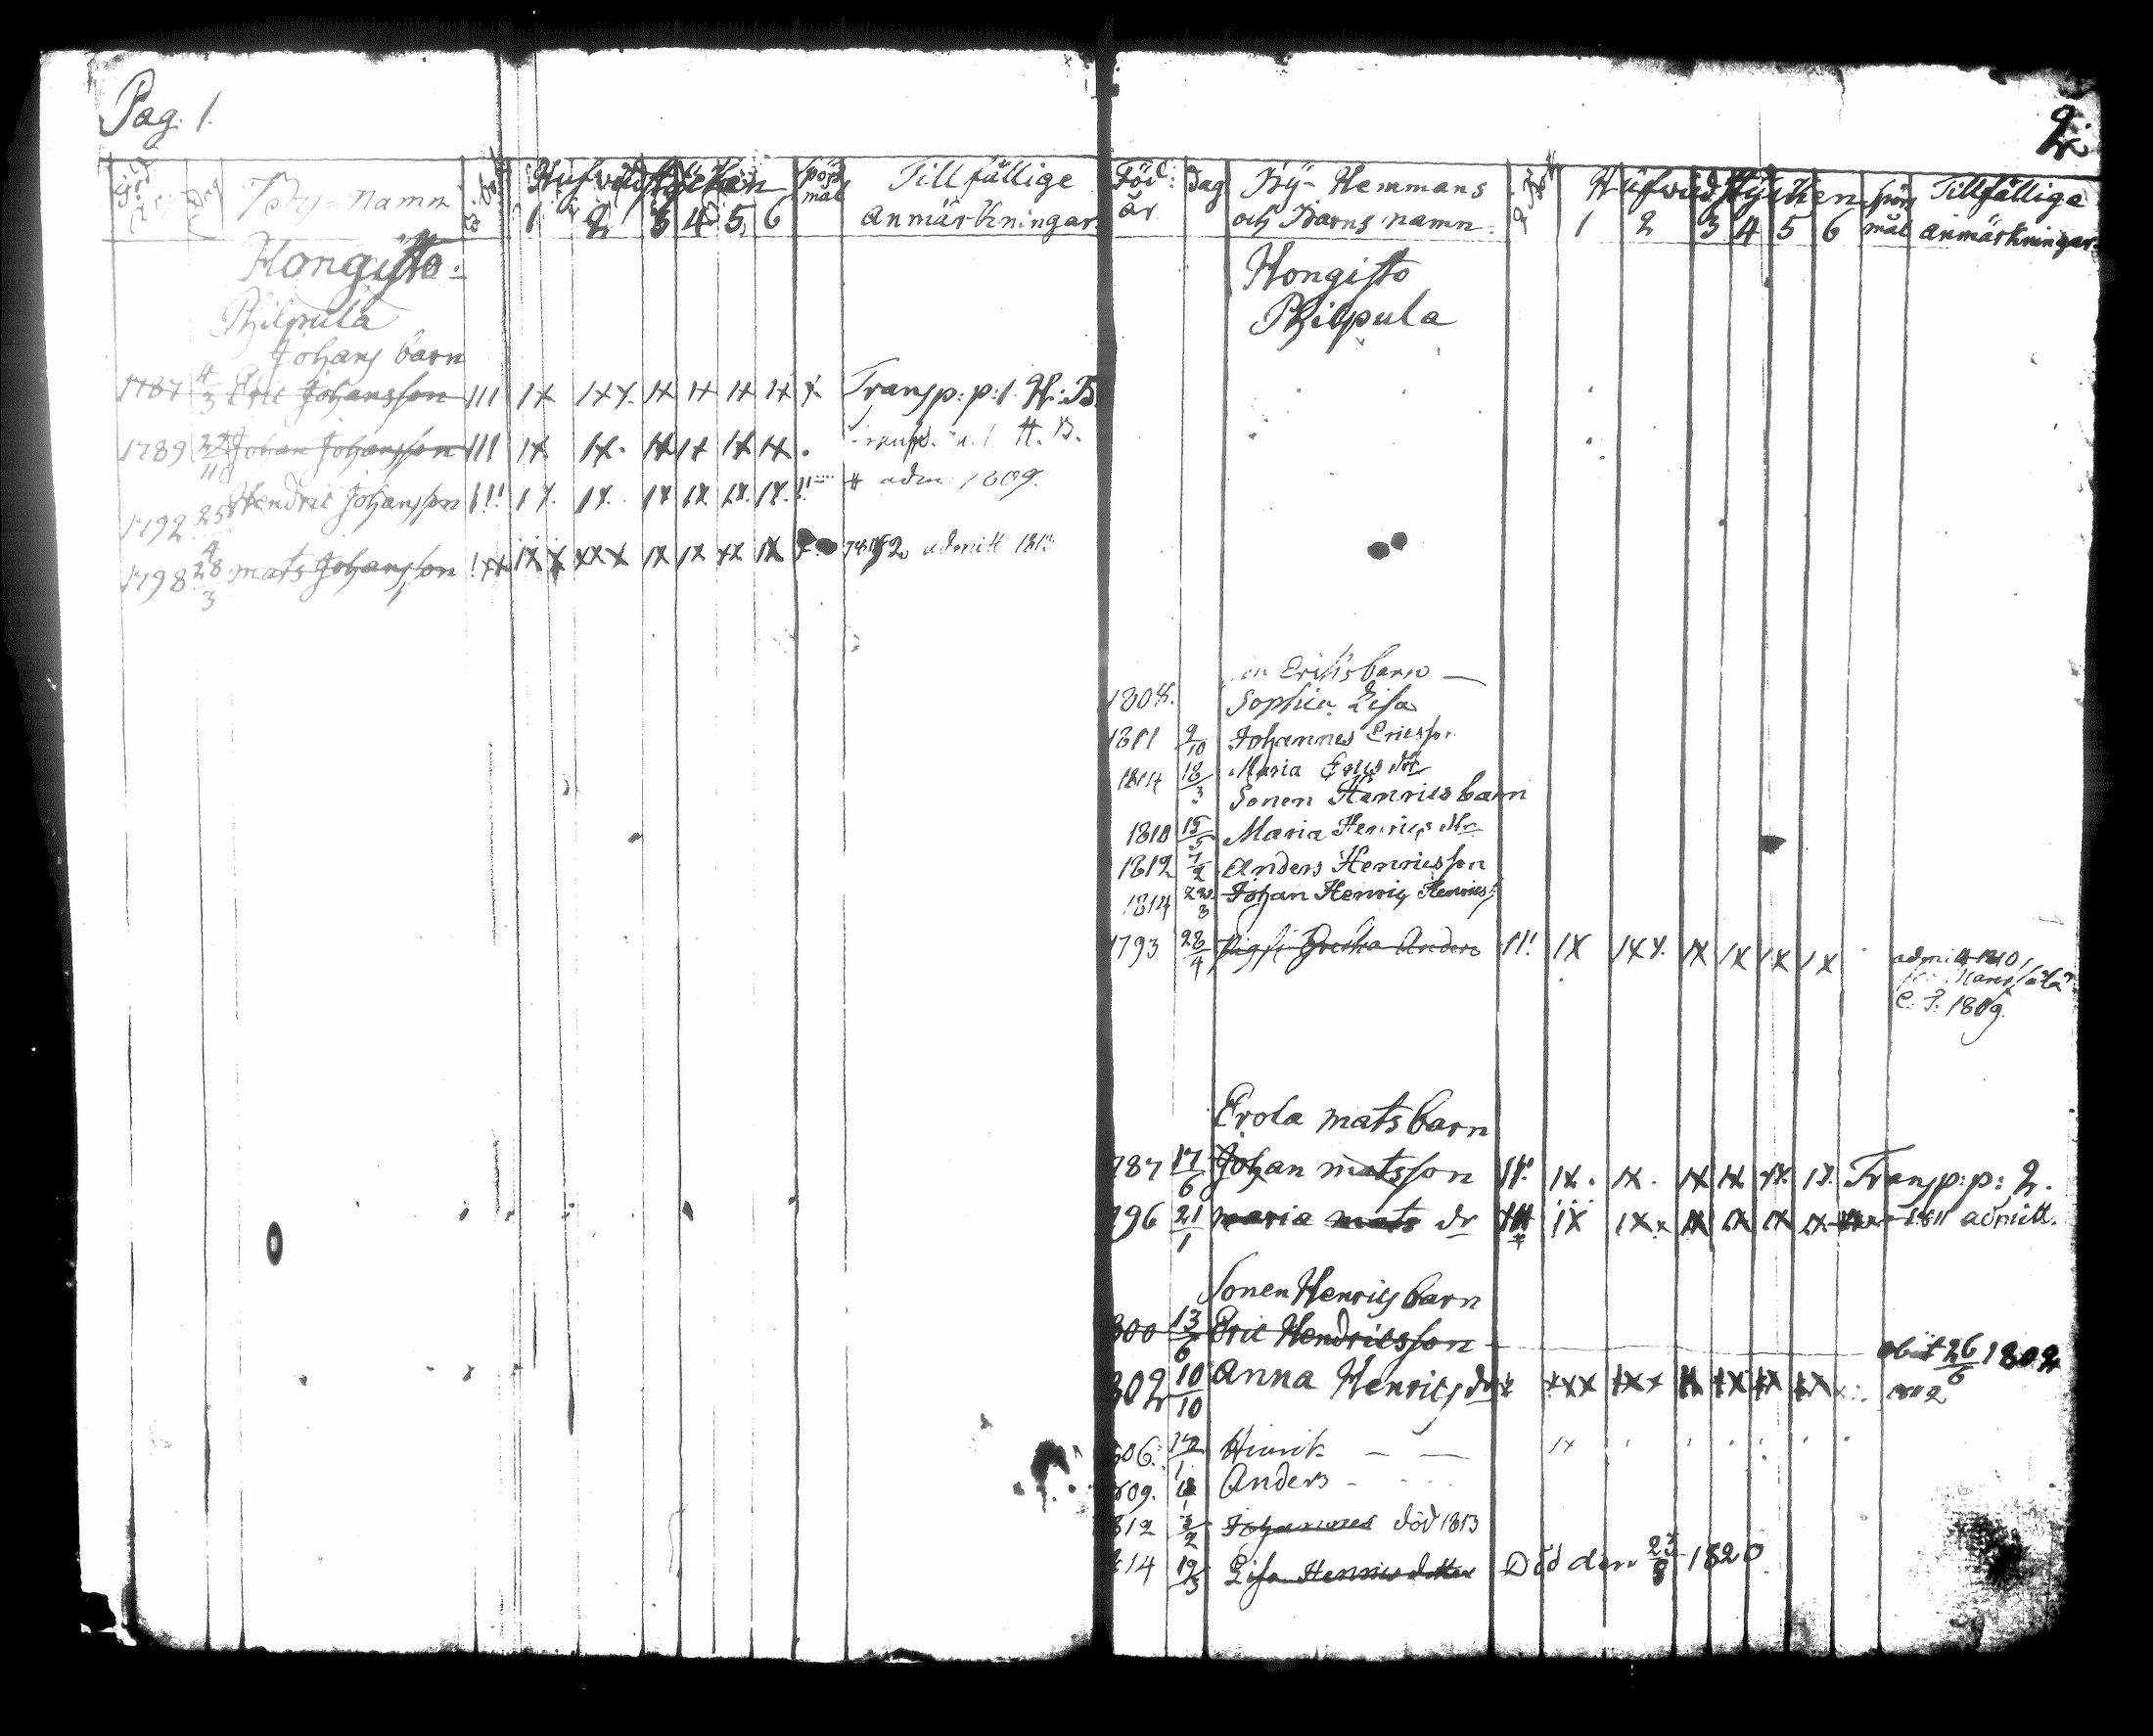 Pag. 1.
Föd
År dag By-namn a b Hufvudstycken spörs Tillfällige
1 2 3 4 5 6 mål anmärkningar.
Hongisto.
Philpula
Johans barn
1787 4/3 Eric Johansson 111 1x 1xx. 1x 1x 1x 1x x Transp: p: 1. H: B.
1789 22/11 Johan Johansson 111 1x 1x. 1x 1x 1x 1x . Transp. p. 1. H. B.
1792 25/4 Hendric Johansson 11! 1x. 1x. 1x 1x 1x. 1x. adm. 1809.
1798 28/3 mats Johansson 1xx 1xx xxx 1x 1x xx 1x admitt 1813
2.
Föd: dag By- Hemmans Hufvud Stycken spörs Tillfällige
år och Barns namn. 1 2 3 4 5 6 mål anmärkningar.
Hongisto
Philpula
Erics barn —
1808. Sophia Lisa
1811 9/10 Johannes Ericsson
1814 18/3 Maria Erics dr
Sonen Henrics barn
1810 15/5 Maria Henrics dr
1812 7/2 Anders Henricsson
1814 22/8 Johan Henric Henrics
1793 28/4 Pig. Greta Anders 11! 1x 1xx. 1x 1x 1x 1x admitt 1810
C. S. 1809.
Erola mats barn
787 17/6 Johan matsson 11! 1x. 1x. 1x 1x xx 1x. Transp: p: 2.
796 21/1 maria mats dr 1x 1xx 1x 1x 1x 1x 1811 admitt.
Sonen Henrics barn
800 13/6 Eric Hendricsson obiit 26/6 1802
802 10/10 Anna Henrics dr x xxx xxx 1x xx xx xx 1812
806. 12/1 Hinrik — — 1x
809. Anders -
812 3/2 Johannes död 1813
814 19/3 Lisa Henrics dotter Död den 23/8 1820